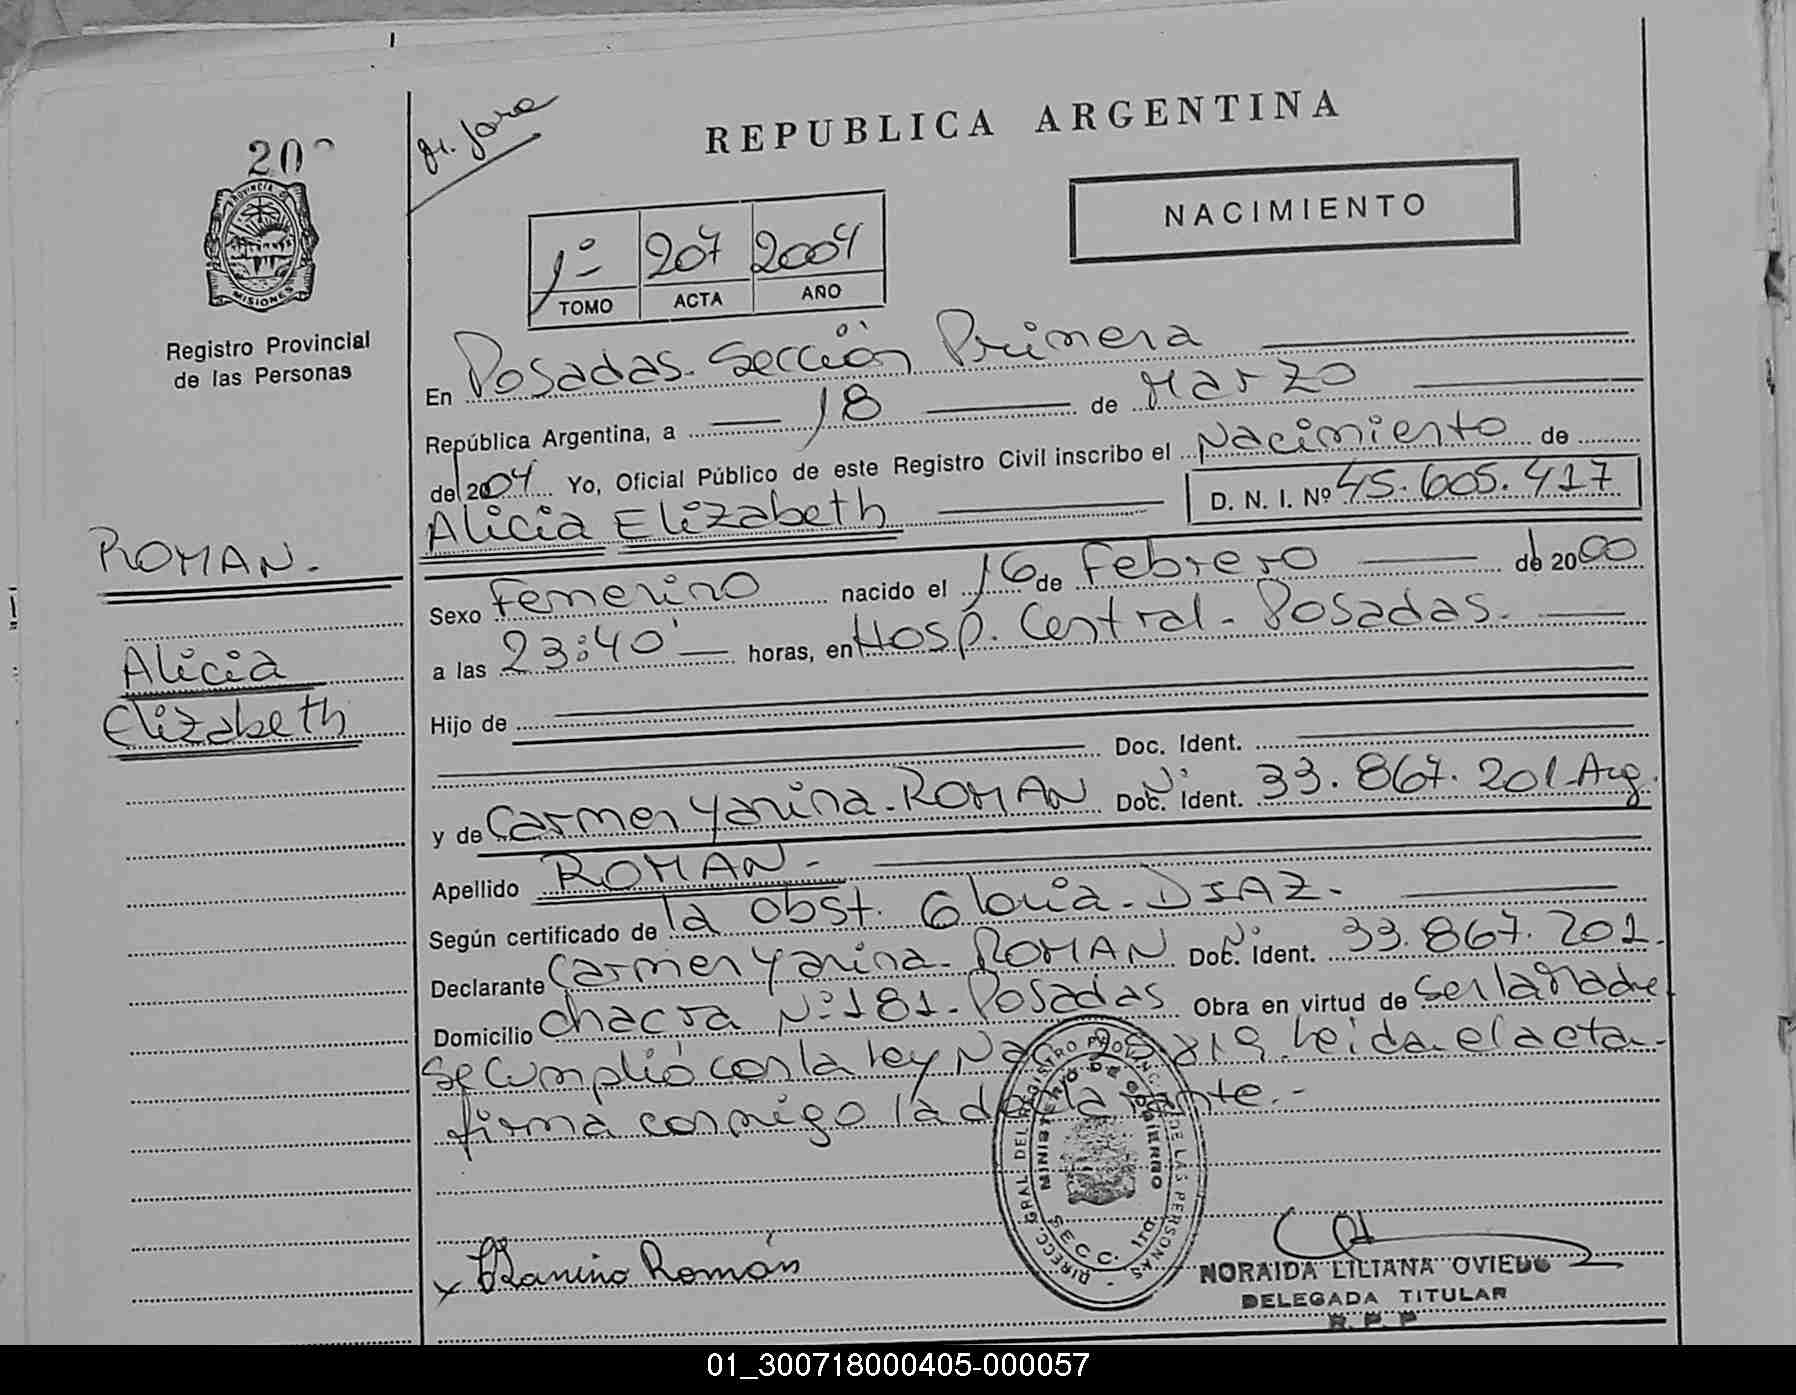 REPUBLICA ARGENTINA
NACIMIENTO
20
PROVINCIA DE
MISIONES
Registro Provincial
de las Personas
1º 207 2004
TOMO ACTA AÑO
En Posadas. Sección Primera
República Argentina, a 18 de Marzo
del 2004 Yo, Oficial Público de este Registro Civil inscribo el Nacimiento de
Alicia Elizabeth D. N. I. Nº 45.605.417
ROMAN.
Alicia
Elizabeth
Sexo Femenino nacido el 16 de Febrero de 2000
a las 23:40' horas, en Hosp. Central - Posadas.
Hijo de
Doc. Ident.
y de Carmen Yanina. ROMAN Doc. Ident. Nº 33.867.201 Arg.
Apellido ROMAN.-
Según certificado de la Obst. Gloria - DIAZ.
Declarante Carmen Yanina. ROMAN Doc. Ident. Nº 33.867.201.
Domicilio Chacra Nº 181 - Posadas Obra en virtud de ser la Madre
Se cumplió con la ley Leida el acta
firma conmigo la declarante.-
DIRECC. GRAL. DEL REGISTRO PROVINC. DE LAS PERSONAS
MINISTERIO DE GOBIERNO
SECC.
Yanina Román
NORAIDA LILIANA OVIEDO
DELEGADA TITULAR
R. P. P
01_300718000405-000057